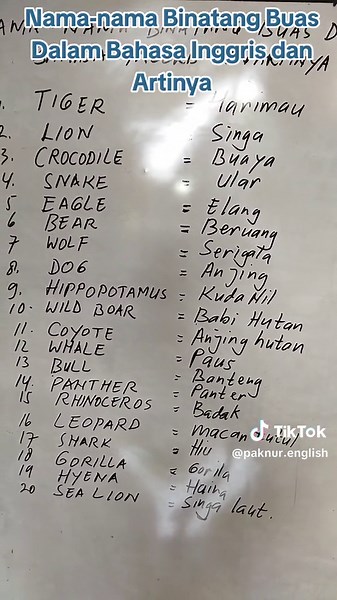 Nama-nama Binatang Buas
Dalam Bahasa Inggris dan
Artinya
1. TIGER = Harimau
2. LION = Singa
3. CROCODILE = Buaya
4. SNAKE = Ular
5 EAGLE = Elang
6 BEAR = Beruang
7 WOLF = Serigala
8. DOG = Anjing
9. HIPPOPOTAMUS = Kuda Nil
10. WILD BOAR = Babi Hutan
11. COYOTE = Anjing hutan
12 WHALE = Paus
13 BULL = Banteng
14. PANTHER = Panter
15 RHINOCEROS = Badak
16 LEOPARD = Macan tutul
17 SHARK = Hiu
18 GORILLA = Gorila
19 HYENA = Haina
20 SEA LION = Singa laut.
TikTok
@paknur.english